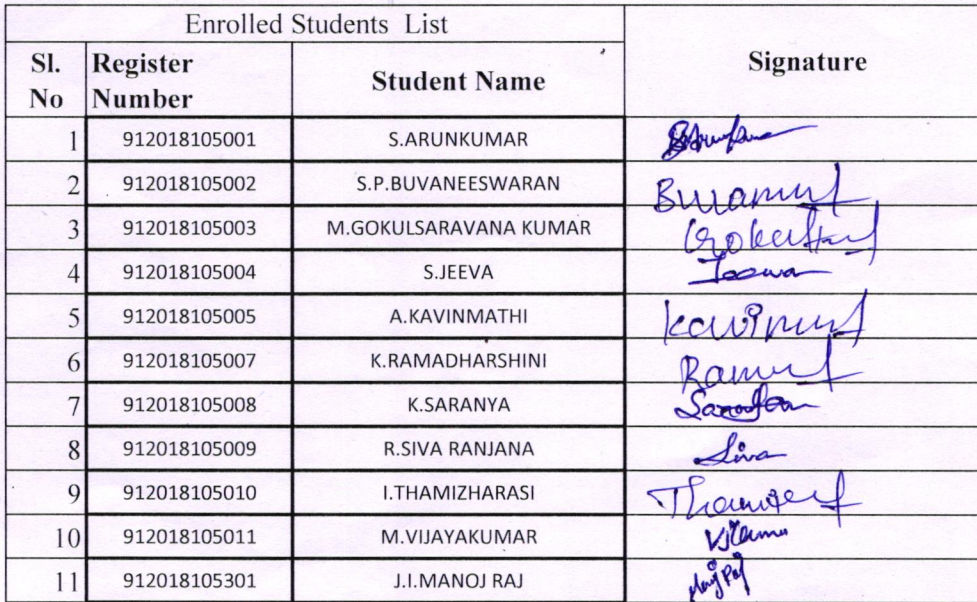 Enrolled Students List
Sl. No Register Number Student Name Signature
1 912018105001 S.ARUNKUMAR
2 912018105002 S.P.BUVANEESWARAN
3 912018105003 M.GOKULSARAVANA KUMAR
4 912018105004 S.JEEVA
5 912018105005 A.KAVINMATHI
6 912018105007 K.RAMADHARSHINI
7 912018105008 K.SARANYA
8 912018105009 R.SIVA RANJANA Siva
9 912018105010 I.THAMIZHARASI
10 912018105011 M.VIJAYAKUMAR
11 912018105301 J.I.MANOJ RAJ